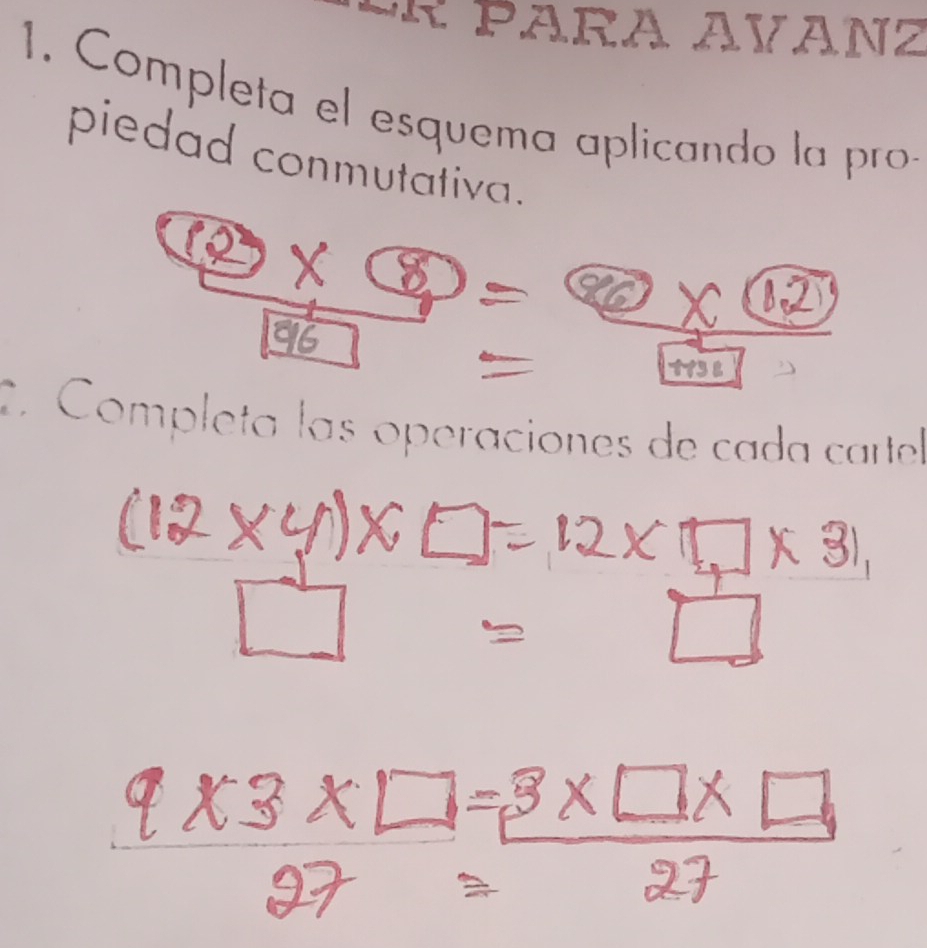 PARA AVANZ
1. Completa el esquema aplicando la pro-
piedad conmutativa.
12 x 8 = 96 x 12
96 =
. Completa las operaciones de cada cartel
(12 x 4) x □ = 12 x □ x 3)
□ = □
9 x 3 x □ = 3 x □ x □
27 = 27